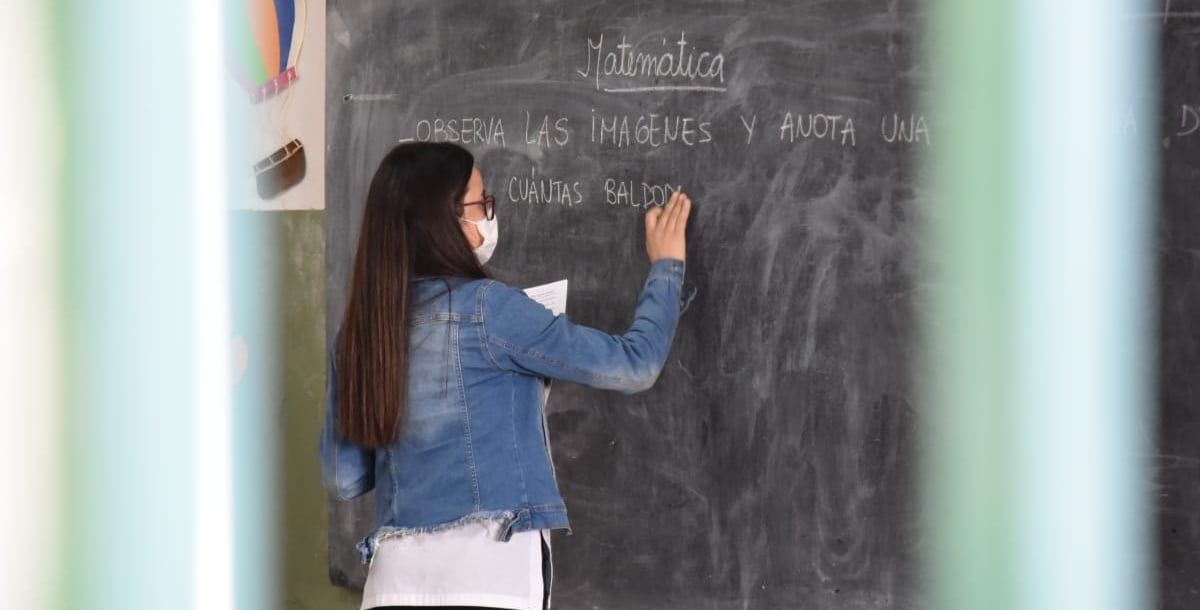 Matemática
_OBSERVA LAS IMÁGENES Y ANOTA UNA
CUÁNTAS